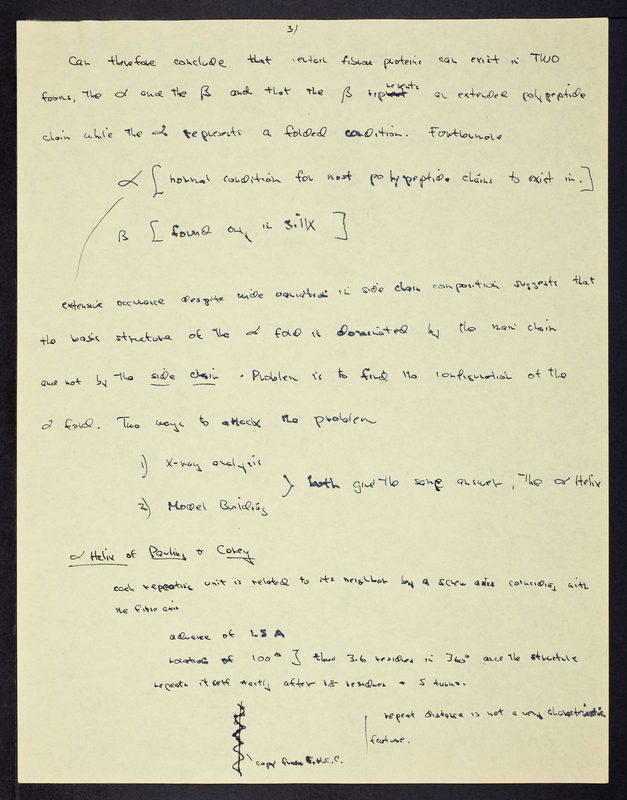 3/
Can therefore conclude that certain fibrous proteins can exist in TWO
forms, the α and the β and that the β represents an extended polypeptide
chain while the α represents a folded condition. Furthermore
α [ normal condition for most polypeptide chains to exist in. ]
β [ found only in silk ]
extensive occurance despite wide variation in side chain composition suggests that
the basic structure of the α fold is dominated by the main chain
and not by the side chain. Problem is to find the configuration of the
α fold. Two ways to attack the problem
1) X-ray analysis
2) Model Building } both give the same answer, The α Helix
α Helix of Pauling + Corey
each repeating unit is related to its neighbor by a screw axis coinciding with
the fibre axis
advance of 1.5 A
rotation of 100° } thus 3.6 residues in 360° and the structure
repeats itself exactly after 18 residues + 5 turns.
repeat distance is not a very characteristic
feature.
copy from F.H.C.C.